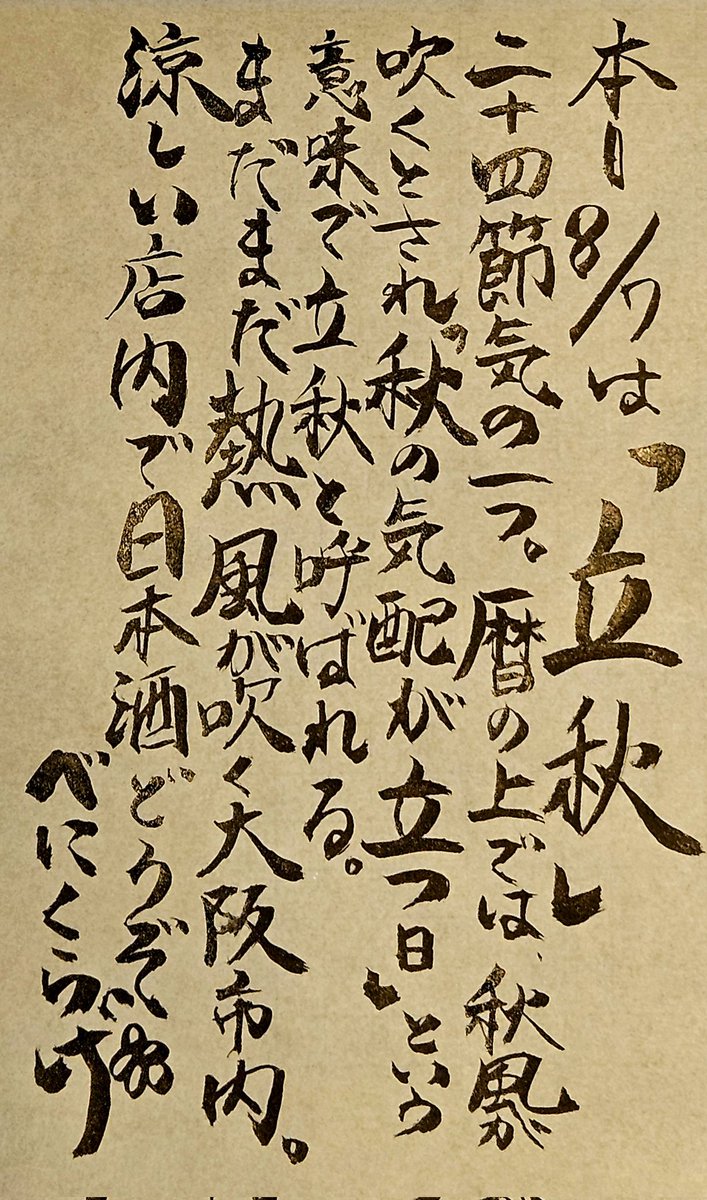 本日8/7は「立秋」
二十四節気の一つ。暦の上では、秋風が
吹くとされ「秋の気配が立つ日」という
意味で立秋と呼ばれる。
まだまだ熱風が吹く大阪市内。
涼しい店内で日本酒どうぞ
べにくらげ